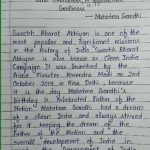 Godliness."
- Mahatma Gandhi.
Swachh Bharat Abhiyan is one of the
most popular and significant missions
in the History of India. Swachh Bharat
Abhiyan is also known as Clean India
Campaign. It was launched by the
Prime Minister Narendra Modi on 2nd
October 2014 in New Delhi, because
it is the day when Mahatma Gandhi's
birthday is celebrated. Father of the
Nation. Mahatma Gandhi had a dream
of a clean India and always strived
for it, keeping the dream of the
Father of the Nation and the
overall development of India in
the Government of India